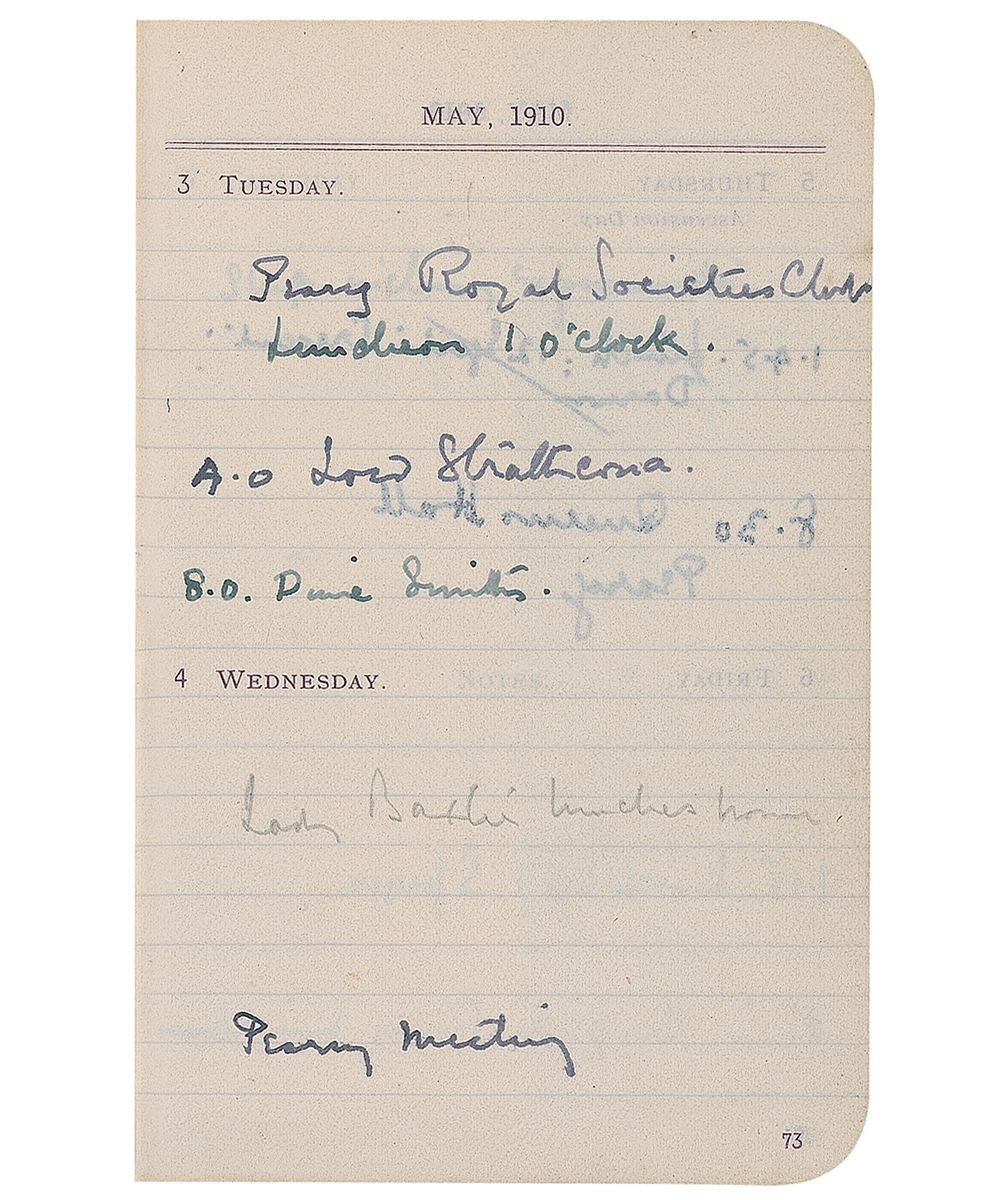 MAY, 1910.
3 TUESDAY.
Peary Royal Societies Club
Luncheon 1 o'clock.
4.0 Lord Strathcona.
8.0. Dine Smiths.
4 WEDNESDAY.
Lady Baxter lunches home
Peary Meeting
73